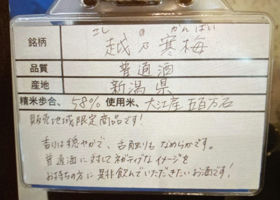 こし の かんばい
銘柄 越乃寒梅
品質 普通酒
産地 新潟県
精米歩合、58% 使用米、大江産五百万石
販売地域限定商品です!
香りは穏やかで、舌触りもなめらかです。
普通酒に対してネガティブなイメージを
お持ちの方に是非飲んでいただきたいお酒です!